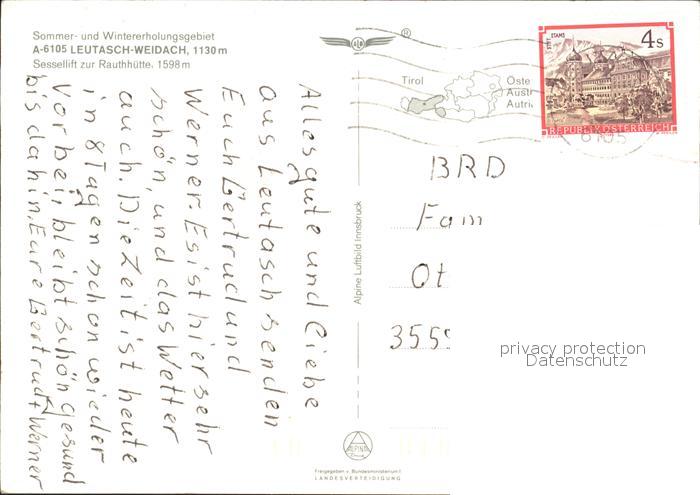 Sommer- und Wintererholungsgebiet
A-6105 LEUTASCH-WEIDACH, 1130 m
Sessellift zur Rauthhütte, 1598 m
Alles gute und liebe
aus Leutasch senden
Euch Gertrud und
Werner. Es ist hier sehr
schön, und das Wetter
auch. Die Zeit ist heute
in 8 Tagen schon wieder
vorbei, bleibt schön gesund
bis dahin, Eure Gertrud + Werner
Alpine Luftbild Innsbruck
ALPINE
Freigegeben v. Bundesministerium f.
LANDESVERTEIDIGUNG
®
Tirol
Öste
Aust
Autri
STIFT STAMS
4 S
REPUBLIK ÖSTERREICH
6105
BRD
Fam
Ot
355
privacy protection
Datenschutz